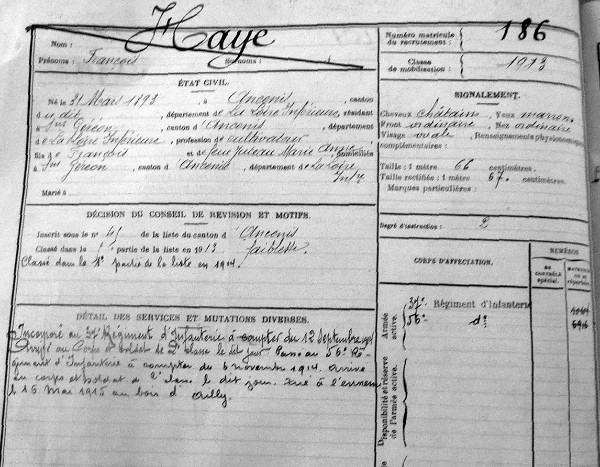 Nom : Haye
Prénoms : François Surnoms :
Numéro matricule du recrutement : 186
Classe de mobilisation : 1913
ÉTAT CIVIL.
Né le 31 Mars 1893, à Ancenis, canton
d dit, département de la Loire Inférieure, résidant
à St Géréon, canton d'Ancenis, département
de la Loire Inférieure, profession de cultivateur
fils de François et de feu Juleau Marie Anne, domiciliés
à St Géréon, canton d'Ancenis, département de la Loire
Infre
Marié à
SIGNALEMENT.
Cheveux châtains, Yeux marrons
Front ordinaire, Nez ordinaire
Visage ovale, Renseignements physionomiques
complémentaires :
Taille : 1 mètre 66 centimètres.
Taille rectifiée : 1 mètre 67 centimètres.
Marques particulières :
DÉCISION DU CONSEIL DE RÉVISION ET MOTIFS.
Inscrit sous le n° 61 de la liste du canton d'Ancenis
Classé dans la partie de la liste en 1913 faiblesse
Classé dans la 1e partie de la liste en 1914.
Degré d'instruction : 2
CORPS D'AFFECTATION.
NUMÉROS
AU CONTRÔLE spécial.
MATRICULE ou au répertoire
DÉTAIL DES SERVICES ET MUTATIONS DIVERSES.
Incorporé au 37e Régiment d'Infanterie à compter du 12 Septembre 1914
Arrivé au Corps et soldat de 2e classe le dit jour. Passé au 56e Ré-
giment d'Infanterie à compter du 6 novembre 1914. Arrivé
au corps et soldat de 2e classe le dit jour. Tué à l'ennemi
le 15 Mai 1915 au bois d'Ailly.
Armée active.
37e Régiment d'Infanterie
56e d°
Disponibilité et réserve de l'armée active.